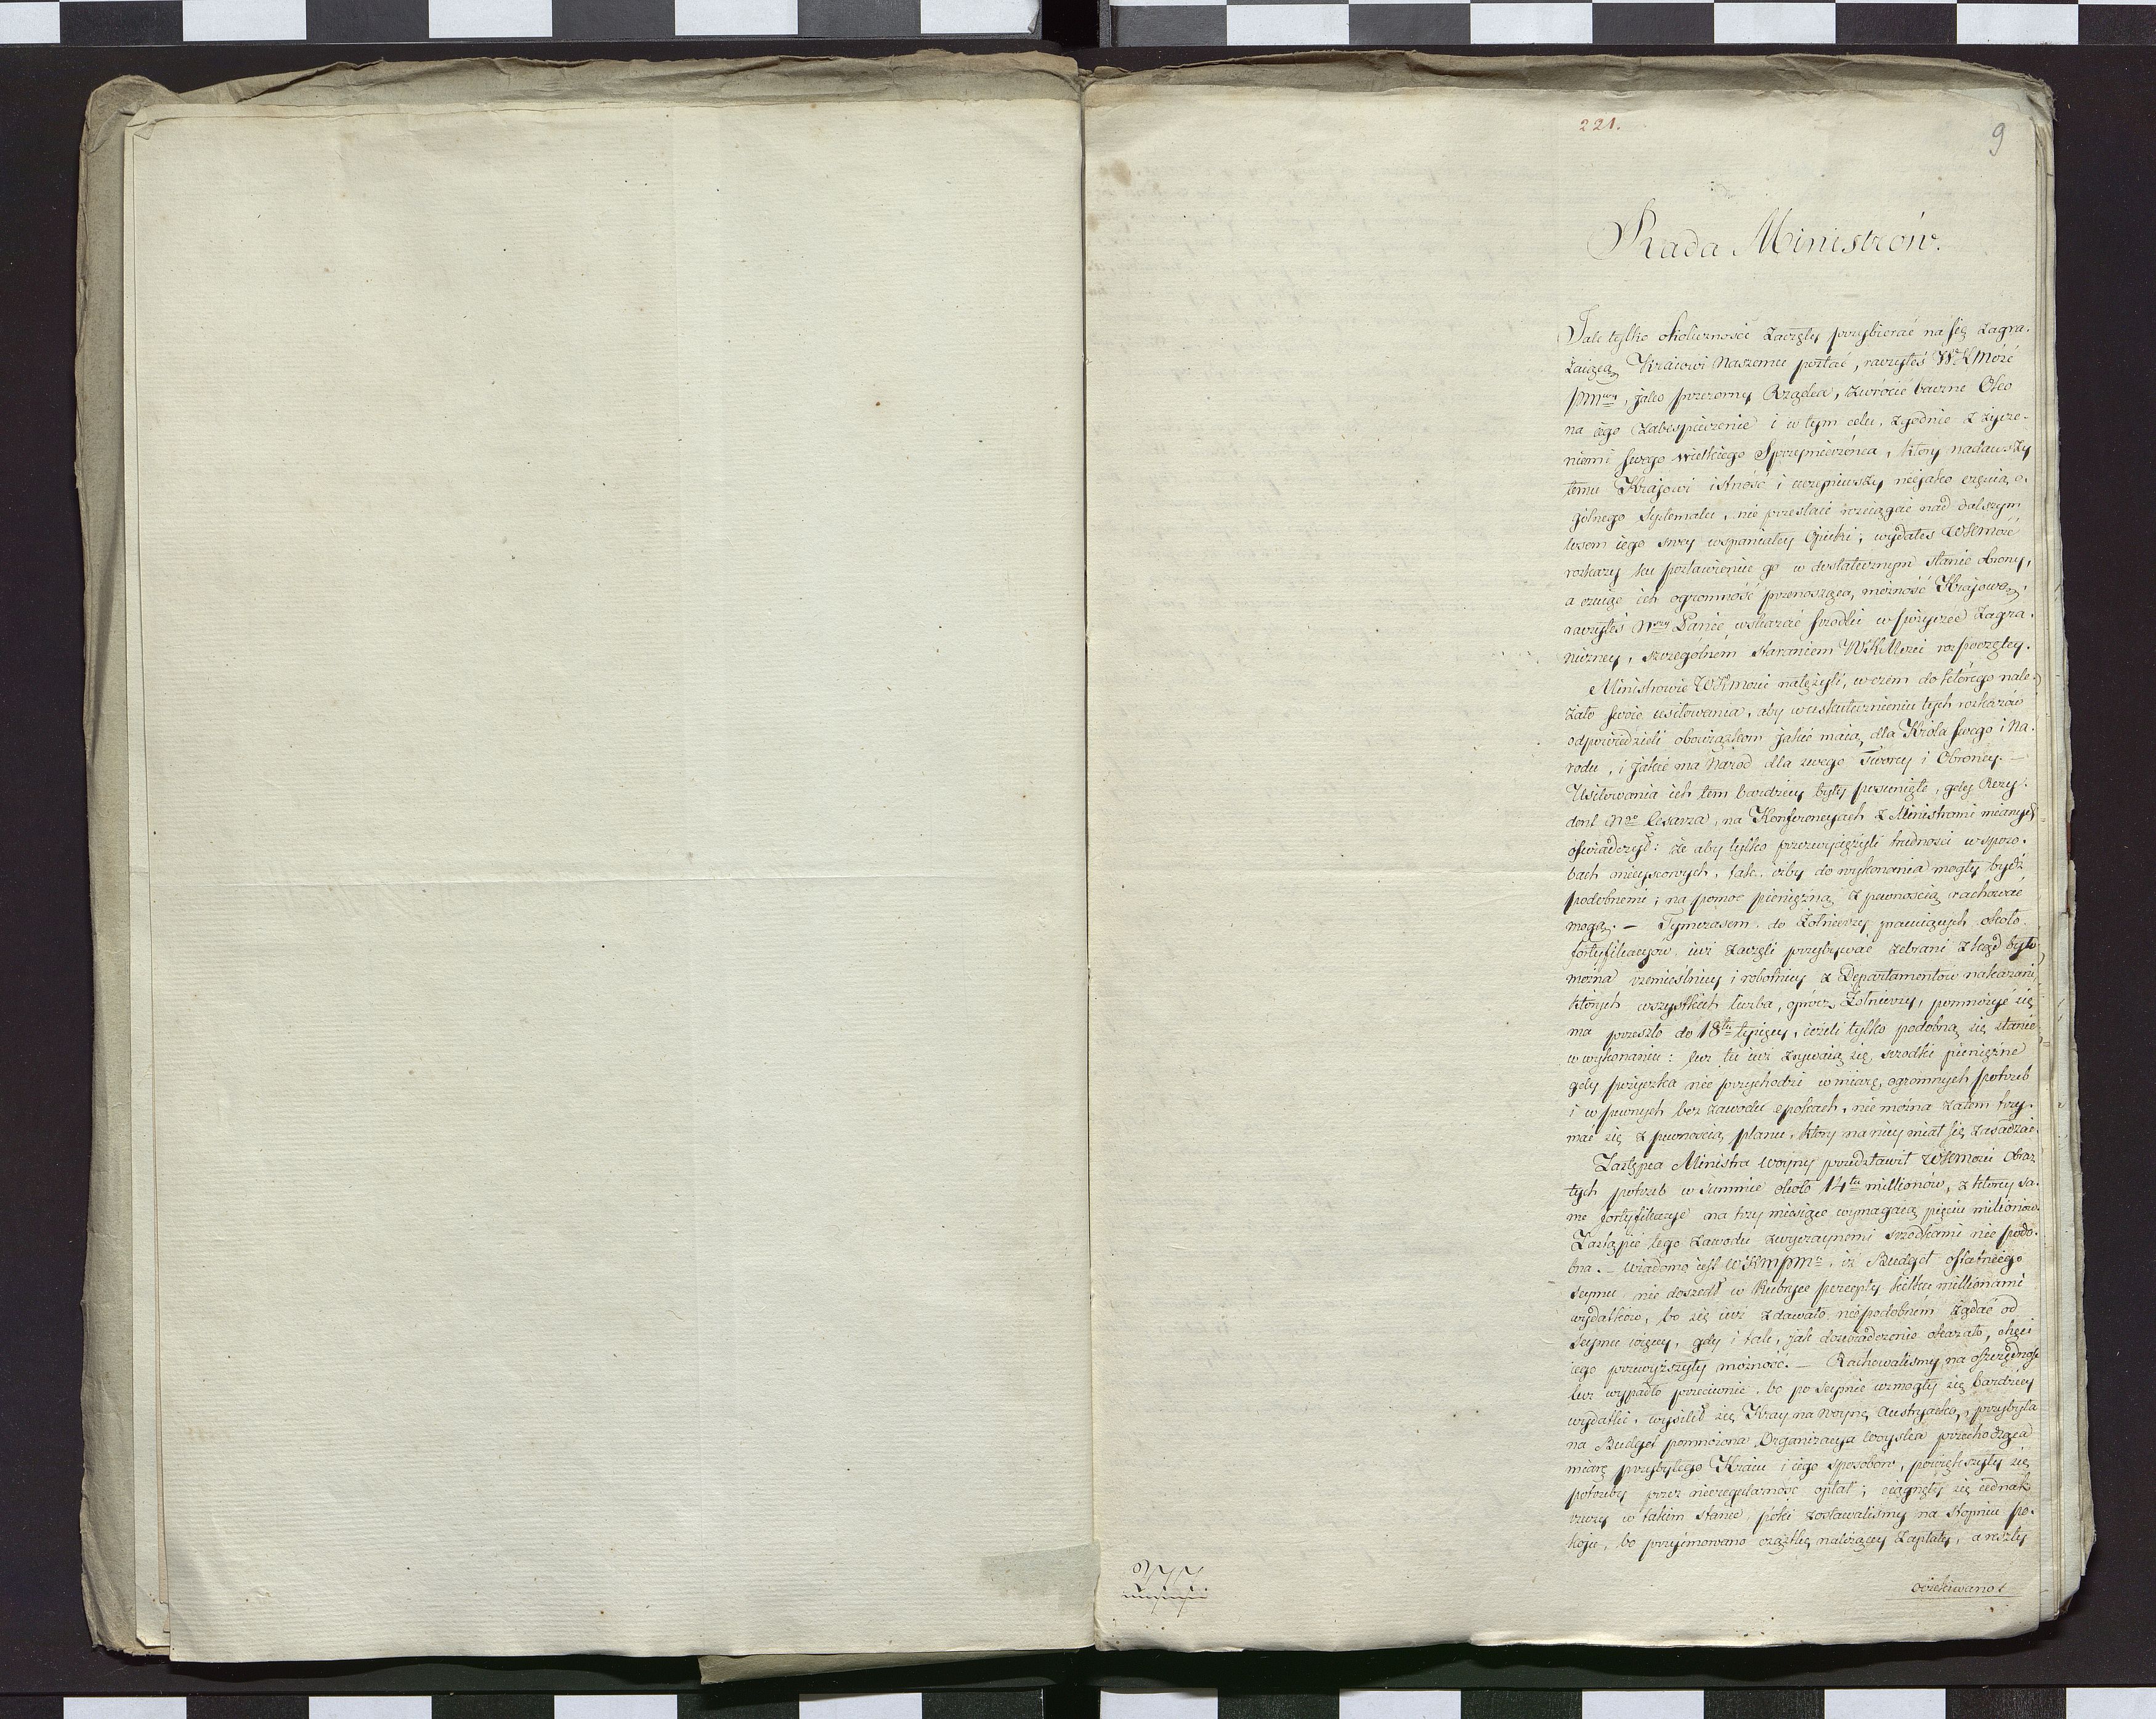 221.
9
Rada Ministrów.
Jak tylko okoliczności zaczęły przybierać na się zagra-
żaiącą Kraiowi Naszemu postać, raczyłeś WKMość
PMny, jako przezorny Rządca, zwrócić baczne Oko
na iego zabespieczenie i w tym celu, zgodnie z życze-
niami swego wielkiego Sprzymierzeńca, który nadawszy
temu Krajowi istność i uczyniwszy nieiako częścią o-
gólnego Systematu, nie przestaie rozciągać nad dalszym
losem iego swey wspaniałey Opieki; wydałeś WKMość
rozkazy ku postawieniu go w dostatecznym stanie obrony,
a czuiąc ich ogromność przenoszącą możność Krajową,
raczyłeś Nny Panie, wskazać srodki w pożyczce Zagra-
niczney, szczególnem staraniem WKMości rozpoczętey.
Ministrowie WKMości natężyli, w czem do którego nale-
żało swoie usiłowania, aby w uskutecznieniu tych rozkazów
odpowiedzieli obowiązkom jakie maią dla Króla swego i Na-
rodu, i jakie ma Naród dla swego Twórcy i Obrońcy. —
Usiłowania ich tem bardziey były posunięte, gdy Rezy-
dent Ngo Cesarza, na Konferencyach z Ministrami mianych
oświadczył: że aby tylko przezwyciężyli trudności w sposo-
bach mieyscowych, tak, iżby do wykonania mogły bydź
podobnemi; na pomoc pieniężną z pewnością rachować
mogą. — Tymczasem do Żołnierzy pracuiących około
fortyfikacyów iuż zaczęli przybywać zebrani zkąd było
można rzemieślnicy i robotnicy z Departamentów nakazani,
których wszystkich liczba, oprócz Żołnierzy, pomnożyć się
ma przeszło do 18tu tysięcy, ieżeli tylko podobną się stanie
w wykonaniu: lecz tu iuż zrywaią się srodki pieniężne
gdy pożyczka nie przychodzi w miarę ogromnych potrzeb
i w pewnych bez zawodu epokach, nie można zatem trzy-
mać się z pewnością planu, który na niey miał się zasadzać.
Zastępca Ministra Woyny przedstawił WKMości Obraz
tych potrzeb w summie około 14tu millionów, z którey sa-
me fortyfikacye na trzy miesiące wymagaią pięciu milionów.
Zastąpić tego zawodu zwyczaynemi srzodkami nie podo-
bna. — Wiadomo iest WKMPMu, iż Budget ostatniego
Seymu nie doszedł w Rubryce percepty kilku millionami
wydatków, bo się iuż zdawało niepodobnem żądać od
Seymu więcey, gdy i tak, jak doświadczenie okazało, chęci
iego przewyższyły możność. — Rachowaliśmy na oszczędność
lecz wypadło przeciwnie, bo po Seymie wzmogły się bardziey
wydatki, wysilił się Kray na Woynę Austryacką, przybyła
na Budget pomnożona Organizacya Woyska przechodząca
miarę przybyłego Kraiu i iego sposobów, powiększyły się
potrzeby przez nieregularność opłat; ciągnęły się iednak
rzeczy w takim stanie póki zostawaliśmy na stopniu po-
koju, bo przyimowano cząstkę należącey zapłaty, a reszty
oczekiwano